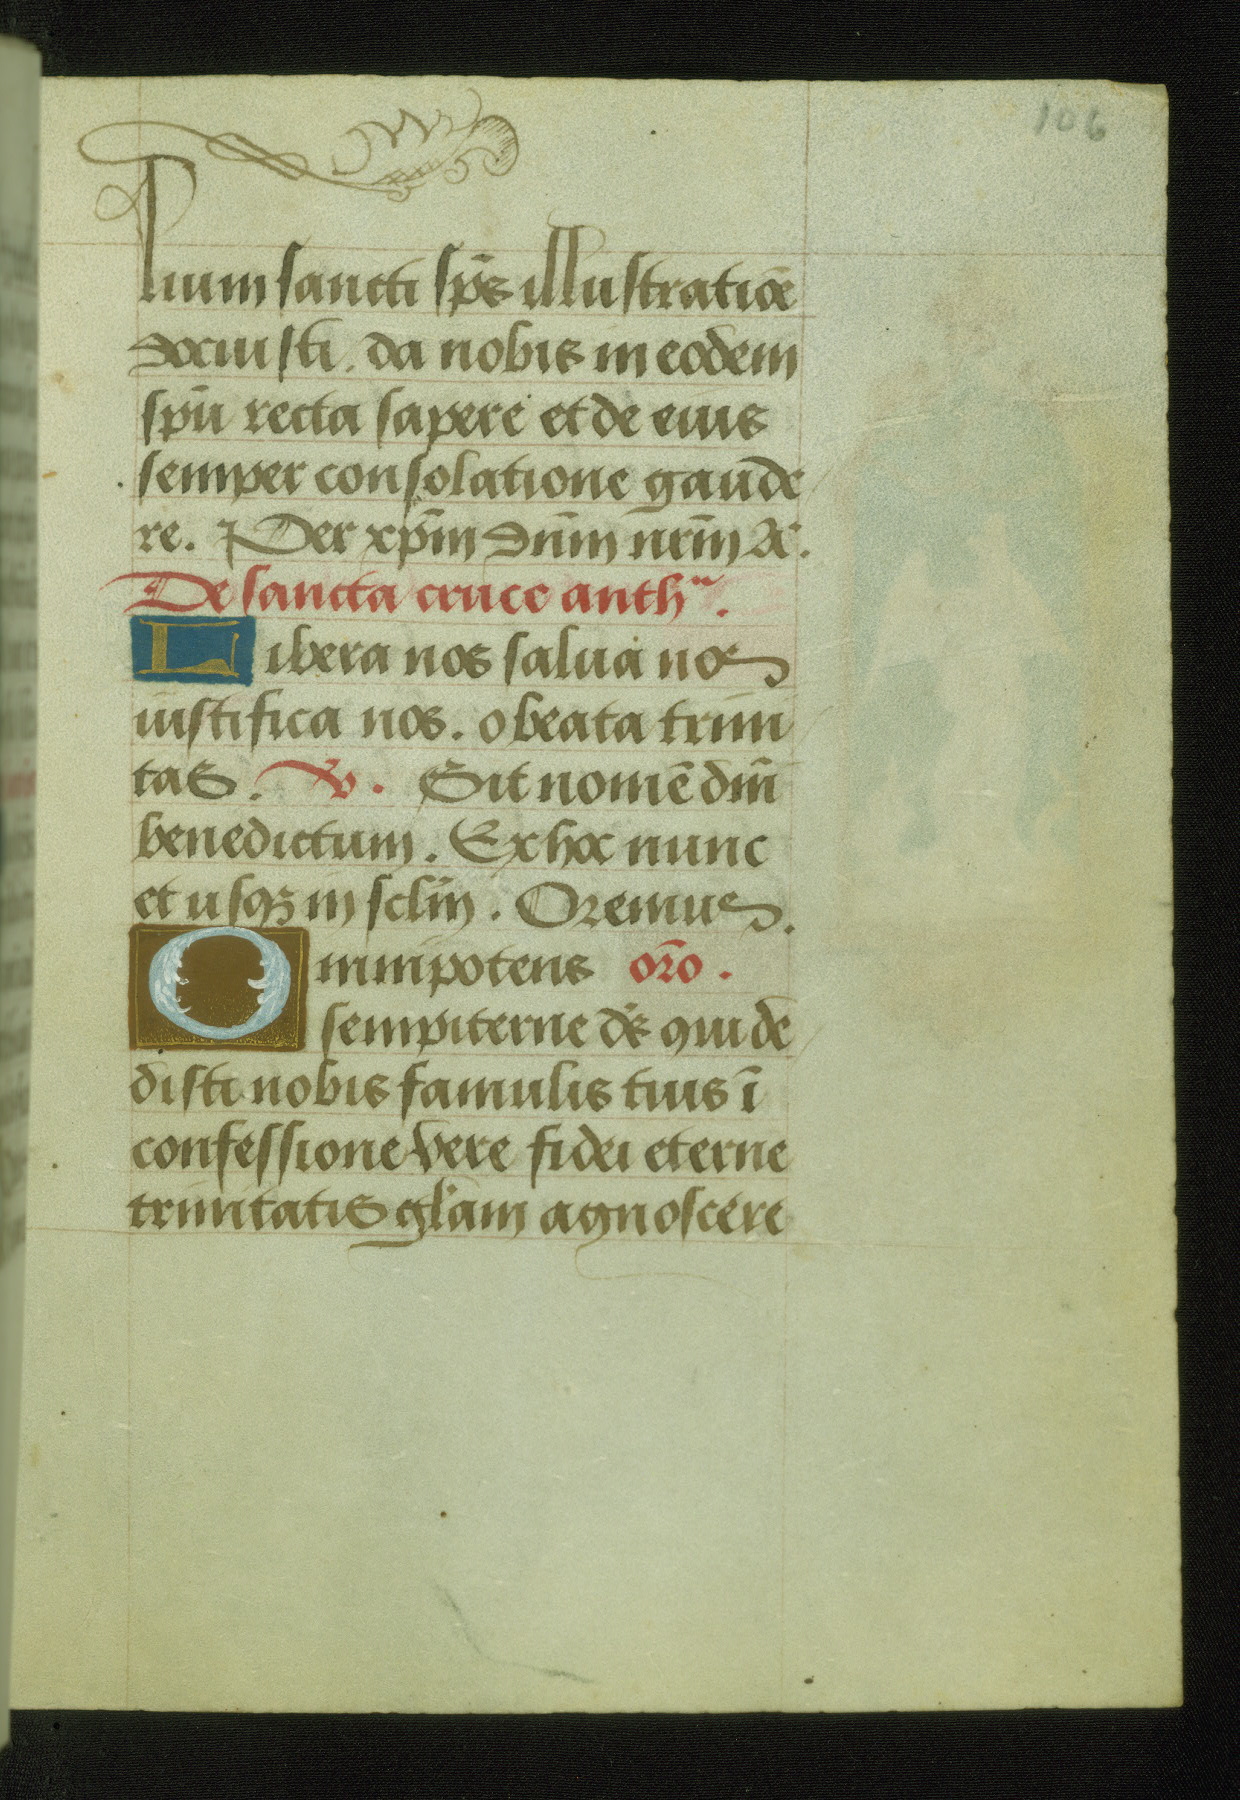 106
lium sancti sp̄s illustratiōe
docuisti. da nobis in eodem
spū recta sapere et de eius
semper consolatione gaude
re. Per xp̄m dn̄m nr̄m &c.
De sancta cruce anthᵃ.
Libera nos salua nos
iustifica nos. o beata trini
tas. ℣. Sit nomē dn̄i
benedictum. Ex hoc nunc
et usqꝫ in sclm̄. Oremus.
Omnipotens or̄o.
sempiterne ds̄ qui de
disti nobis famulis tuis ī
confessione vere fidei eterne
trinitatis gl̄iam agnoscere